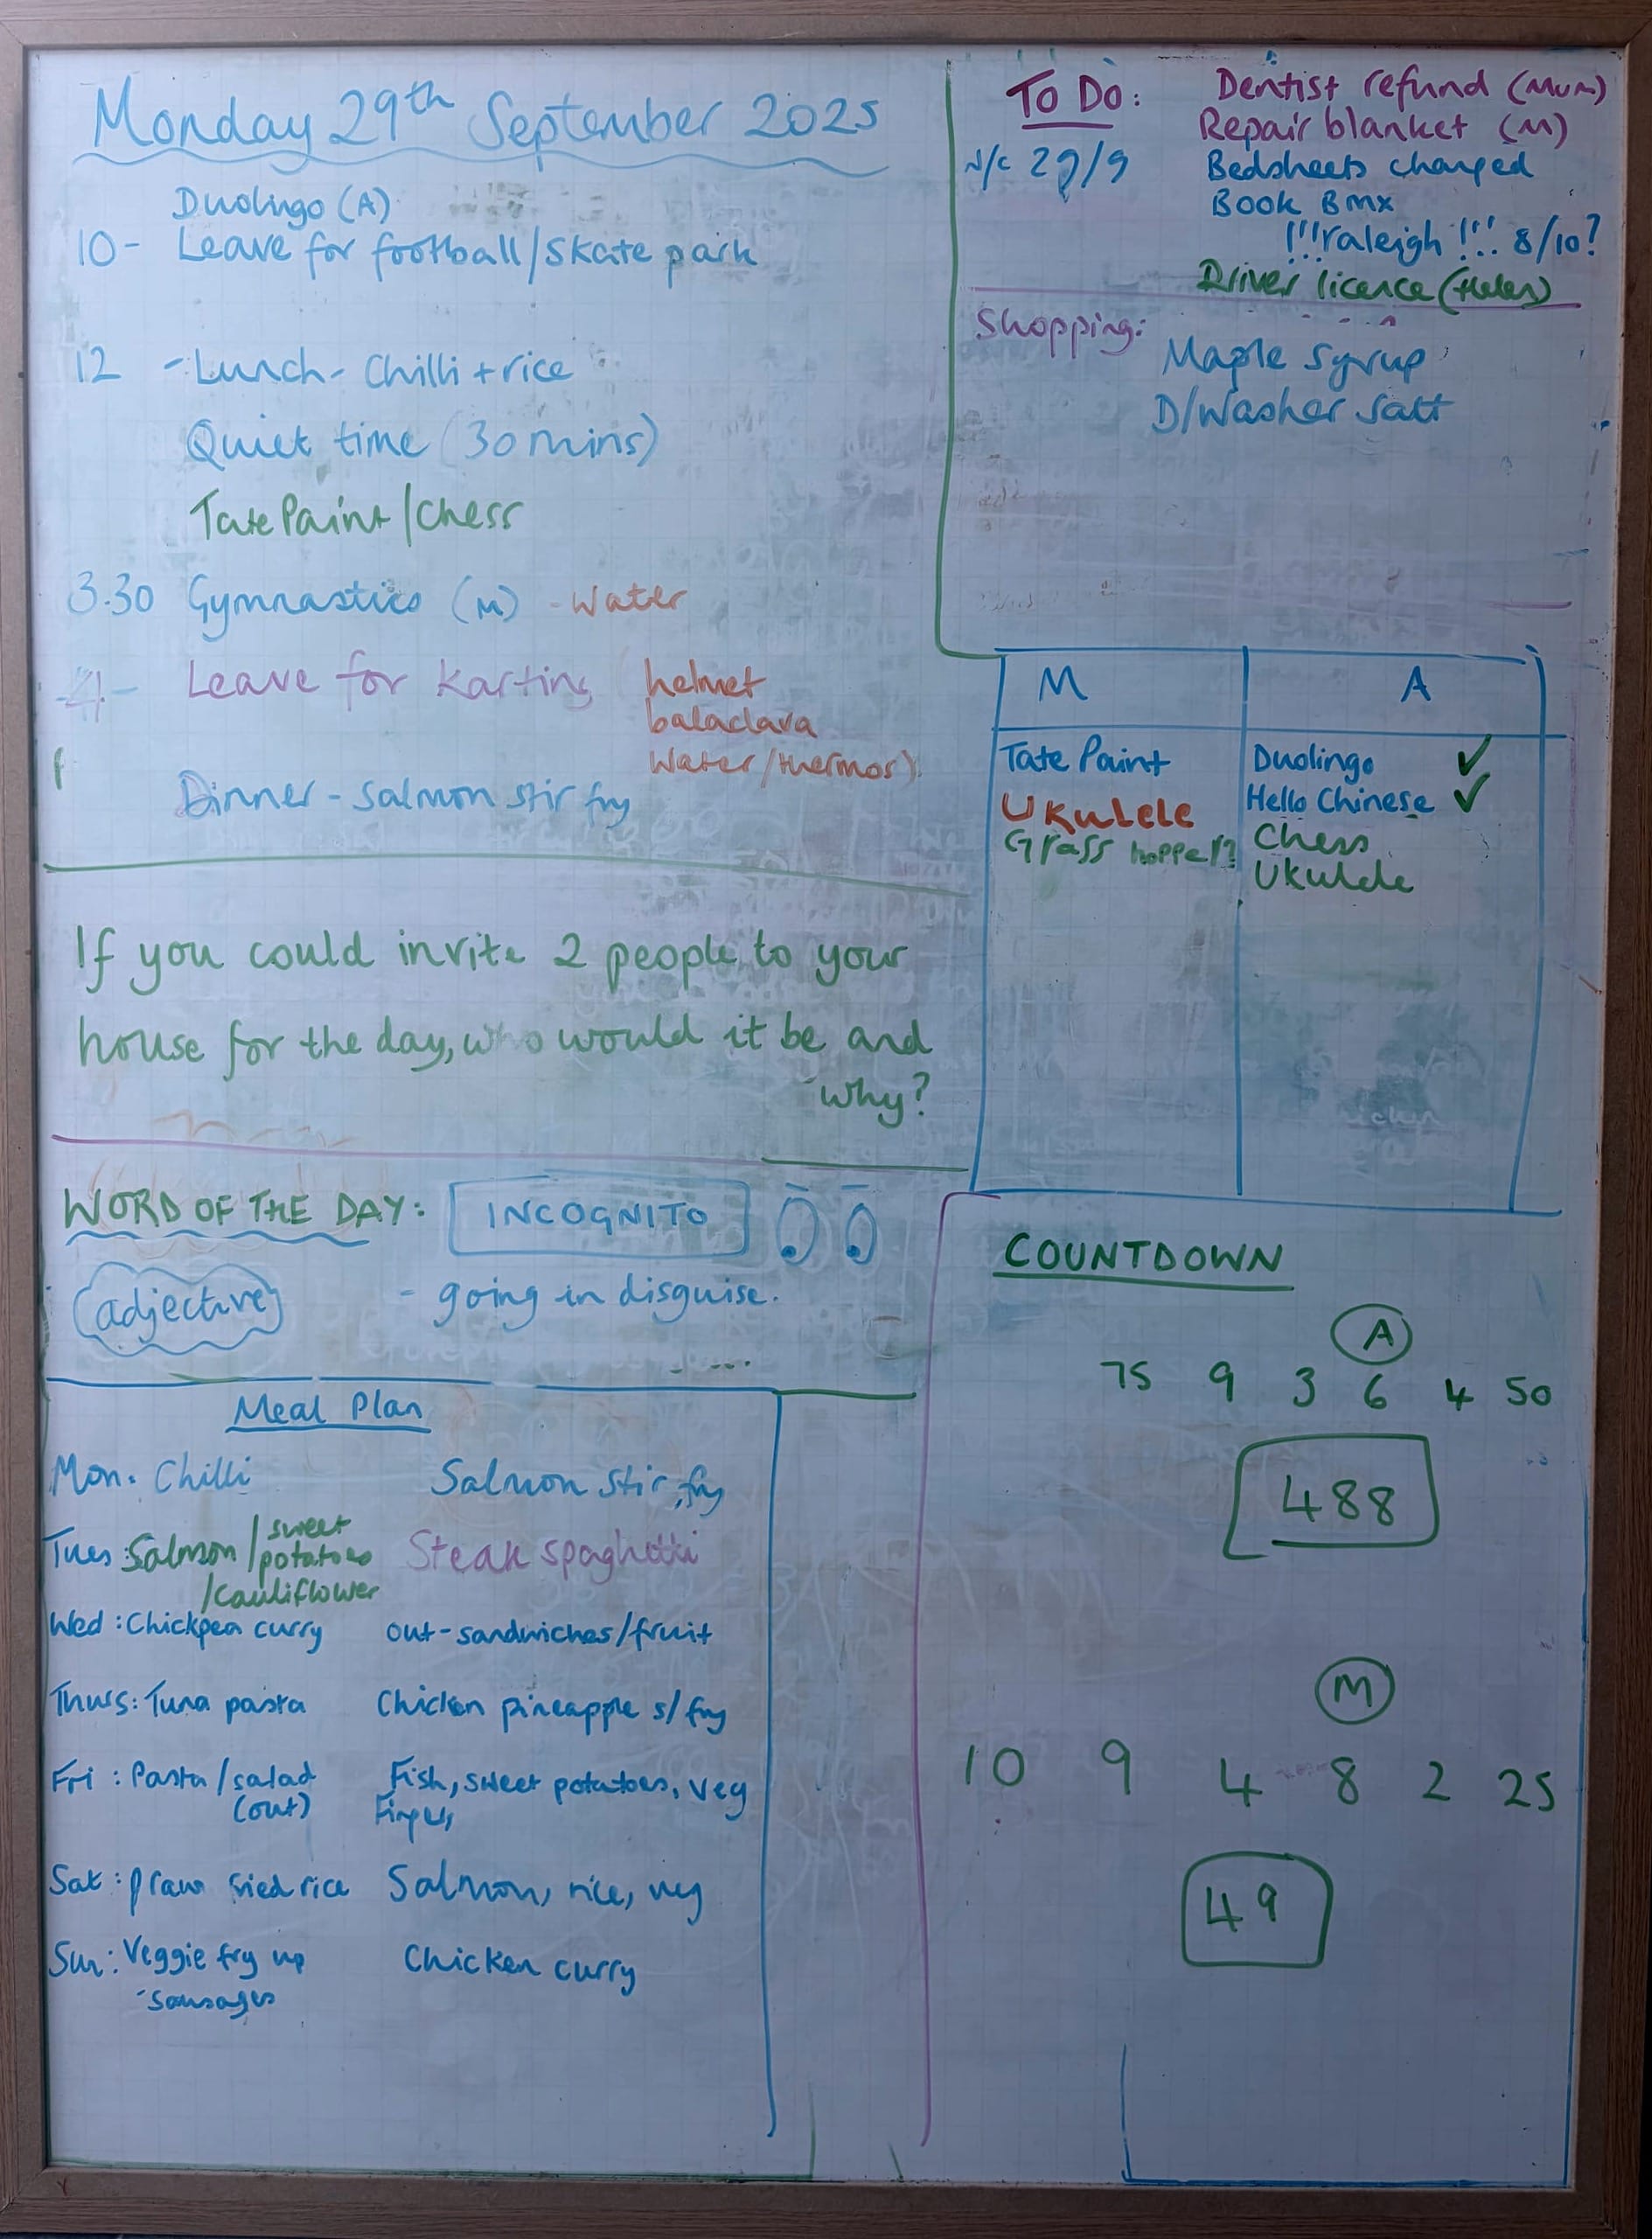 Monday 29th September 2025
Duolingo (A)
10- Leave for football/skate park
12 - Lunch - Chilli + rice
Quiet time (30 mins)
Tate Paint/Chess
3.30 Gymnastics (M) - Water
4- Leave for karting helmet
balaclava
Water/thermos)
Dinner - Salmon stir fry
If you could invite 2 people to your
house for the day, who would it be and
why?
WORD OF THE DAY: INCOGNITO
adjective - going in disguise.
Meal Plan
Mon: Chilli Salmon stir fry
Tues: Salmon/sweet potatoes/cauliflower Steak spaghetti
Wed: Chickpea curry out-sandwiches/fruit
Thurs: Tuna pasta Chicken pineapple s/fry
Fri: Pasta/salad Fish, sweet potatoes, veg
(out)
Sat: Prawn fried rice Salmon, rice, veg
Sun: Veggie fry up Chicken curry
sausages
To Do: Dentist refund (Mum)
Repair blanket (M)
29/9 Bedsheets changed
Book BMX
!!!raleigh!!! 8/10?
Driver licence (Helen)
Shopping:
Maple syrup
D/Washer salt
M A
Tate Paint Duolingo ✓
Ukulele Hello Chinese ✓
Grass hopper? Chess
Ukulele
COUNTDOWN
A
75 9 3 6 4 50
488
M
10 9 4 8 2 25
49